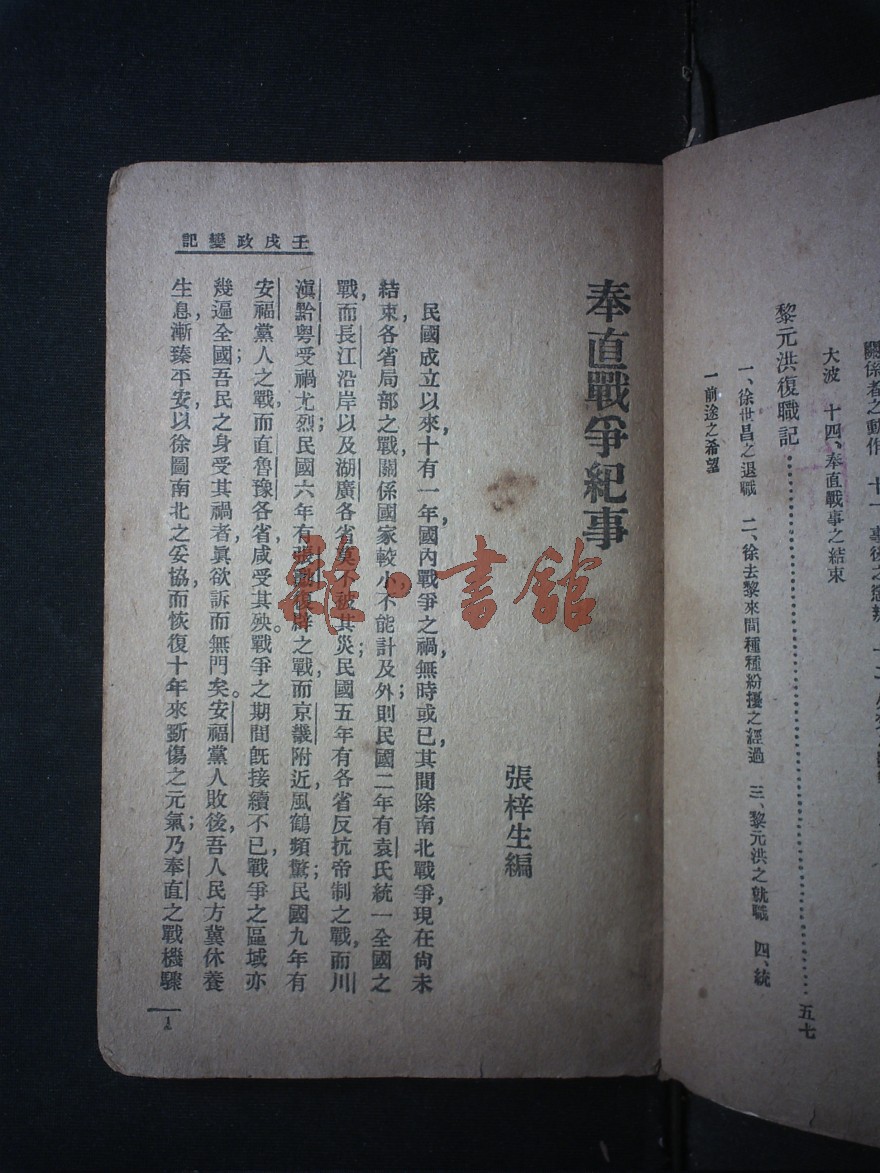 關係者之動作 十一、事後之懲辦 十二、外交
大波 十四、奉直戰事之結束
黎元洪復職記……五七
一、徐世昌之退職 二、徐去黎來間種種紛擾之經過 三、黎元洪之就職 四、統
一前途之希望
奉直戰爭紀事
張梓生編
民國成立以來，十有一年，國內戰爭之禍，無時或已，其間除南北戰爭，現在尚未
結束，各省局部之戰，關係國家較小，不能計及外；則民國二年有袁氏統一全國之
戰，而長江沿岸以及湖廣各省，莫不被其災；民國五年有各省反抗帝制之戰，而川
滇黔粵受禍尤烈；民國六年有張勳復辟之戰，而京畿附近，風鶴頻驚；民國九年有
安福黨人之戰，而直魯豫各省，咸受其殃。戰爭之期間，既接續不已，戰爭之區域，亦
幾遍全國；吾民之身受其禍者，眞欲訴而無門矣。安福黨人敗後，吾人民方冀休養
生息，漸臻平安，以徐圖南北之妥協，而恢復十年來斲傷之元氣；乃奉直之戰機驟
壬戌政變記
1
雜·書館